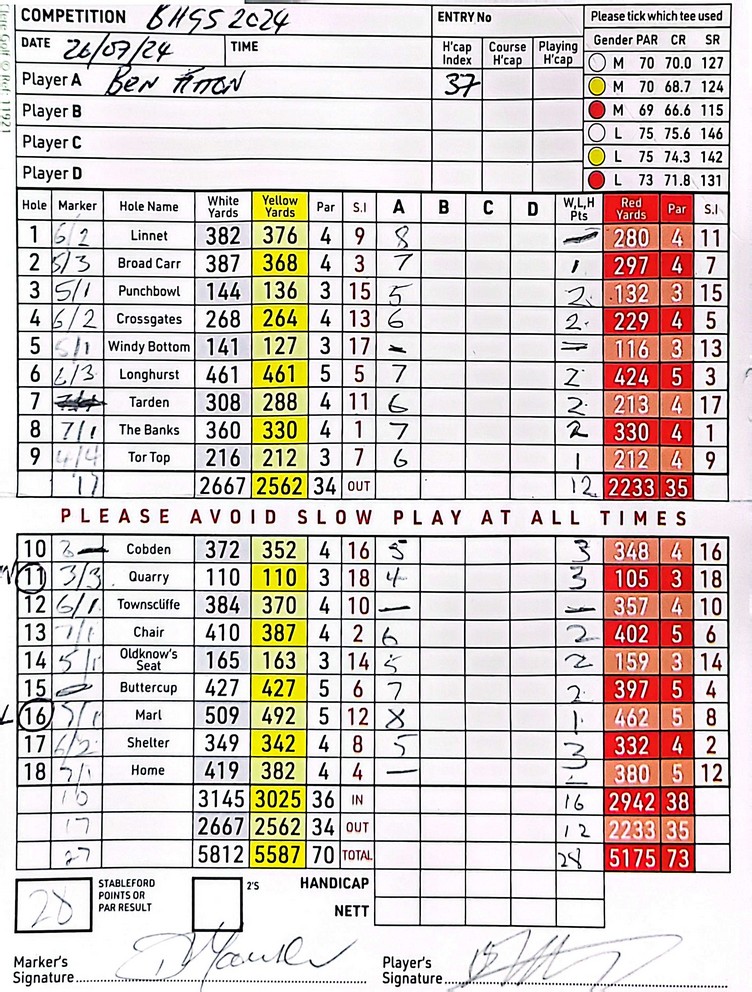 COMPETITION BHGS 2024 ENTRY No Please tick which tee used
DATE 26/07/24 TIME H'cap Index Course H'cap Playing H'cap Gender PAR CR SR
M 70 70.0 127
Player A BEN 37 M 70 68.7 124
Player B M 69 66.6 115
Player C L 75 75.6 146
L 75 74.3 142
Player D L 73 71.8 131
Hole Marker Hole Name White Yards Yellow Yards Par S.I A B C D W,L,H Pts Red Yards Par S.I
1 6/2 Linnet 382 376 4 9 8 – 280 4 11
2 5/3 Broad Carr 387 368 4 3 7 1 297 4 7
3 5/1 Punchbowl 144 136 3 15 5 2 132 3 15
4 6/2 Crossgates 268 264 4 13 6 2 229 4 5
5 5/1 Windy Bottom 141 127 3 17 – – 116 3 13
6 6/3 Longhurst 461 461 5 5 7 2 424 5 3
7 Tarden 308 288 4 11 6 2 213 4 17
8 7/1 The Banks 360 330 4 1 7 2 330 4 1
9 4/4 Tor Top 216 212 3 7 6 1 212 4 9
17 2667 2562 34 OUT 12 2233 35
PLEASE AVOID SLOW PLAY AT ALL TIMES
10 8– Cobden 372 352 4 16 5 3 348 4 16
11 3/3 Quarry 110 110 3 18 4 3 105 3 18
12 6/1 Townscliffe 384 370 4 10 – – 357 4 10
13 7/1 Chair 410 387 4 2 6 2 402 5 6
14 5/1 Oldknow's Seat 165 163 3 14 5 2 159 3 14
15 Buttercup 427 427 5 6 7 2 397 5 4
16 5/1 Marl 509 492 5 12 8 1 462 5 8
17 6/2 Shelter 349 342 4 8 5 3 332 4 2
18 7/1 Home 419 382 4 4 – – 380 5 12
10 3145 3025 36 IN 16 2942 38
17 2667 2562 34 OUT 12 2233 35
27 5812 5587 70 TOTAL 28 5175 73
28 STABLEFORD POINTS OR PAR RESULT 2'S HANDICAP
NETT
Marker's Signature Player's Signature